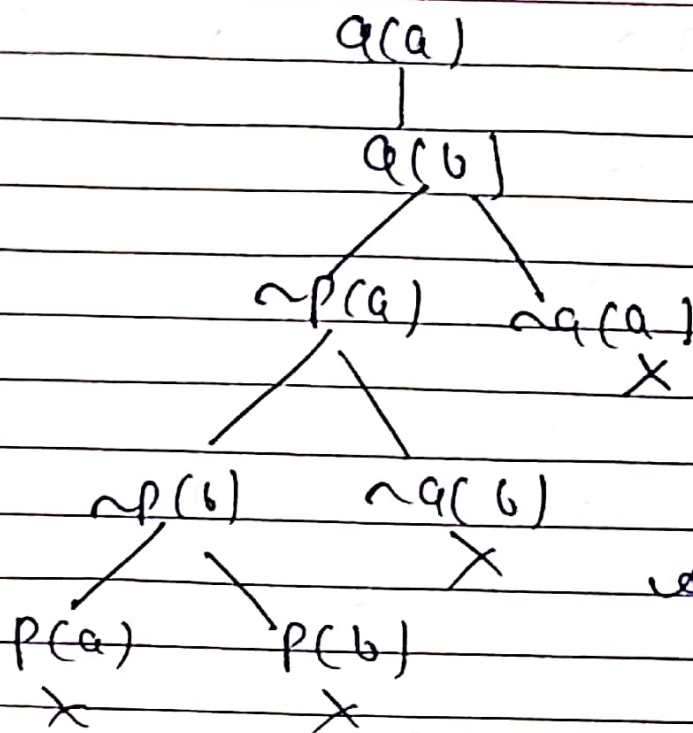 q(a)
q(b)
~p(a) ~q(a)
×
~p(b) ~q(b)
×
p(a) p(b)
× ×